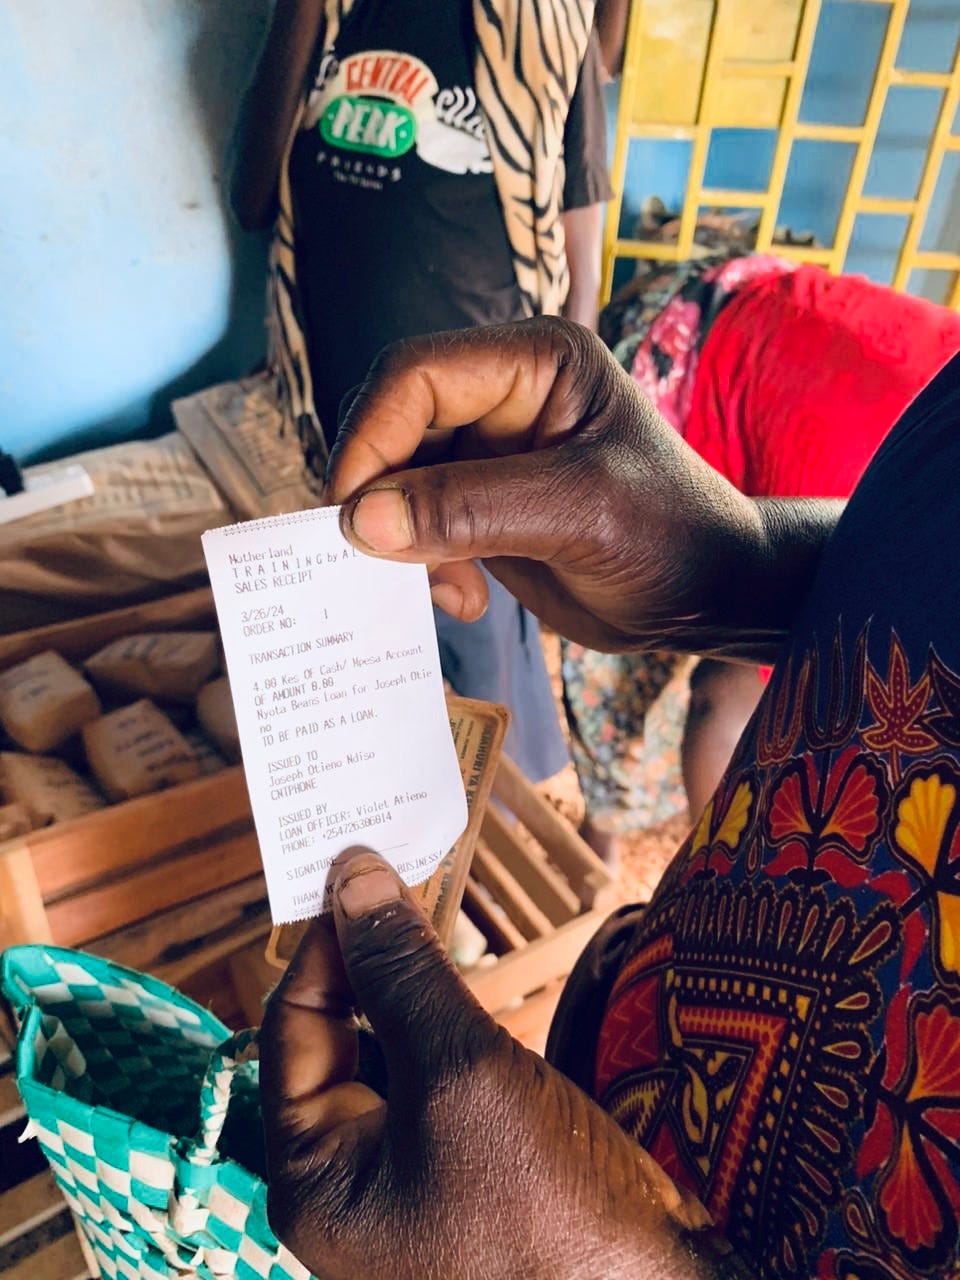 CENTRAL
PERK
FRIENDS
The TV Series
Motherland
TRAINING by
SALES RECEIPT
3/26/24
ORDER NO: 1
TRANSACTION SUMMARY
4.00 Kes OF Cash/ Mpesa Account
OF AMOUNT 0.00
Nyota Beans Loan for Joseph Otie
no
TO BE PAID AS A LOAN.
ISSUED TO
Joseph Otieno Ndiso
CNTPHONE
ISSUED BY
LOAN OFFICER: Violet Atieno
PHONE: +254726306014
SIGNATURE
THANK BUSINESS!